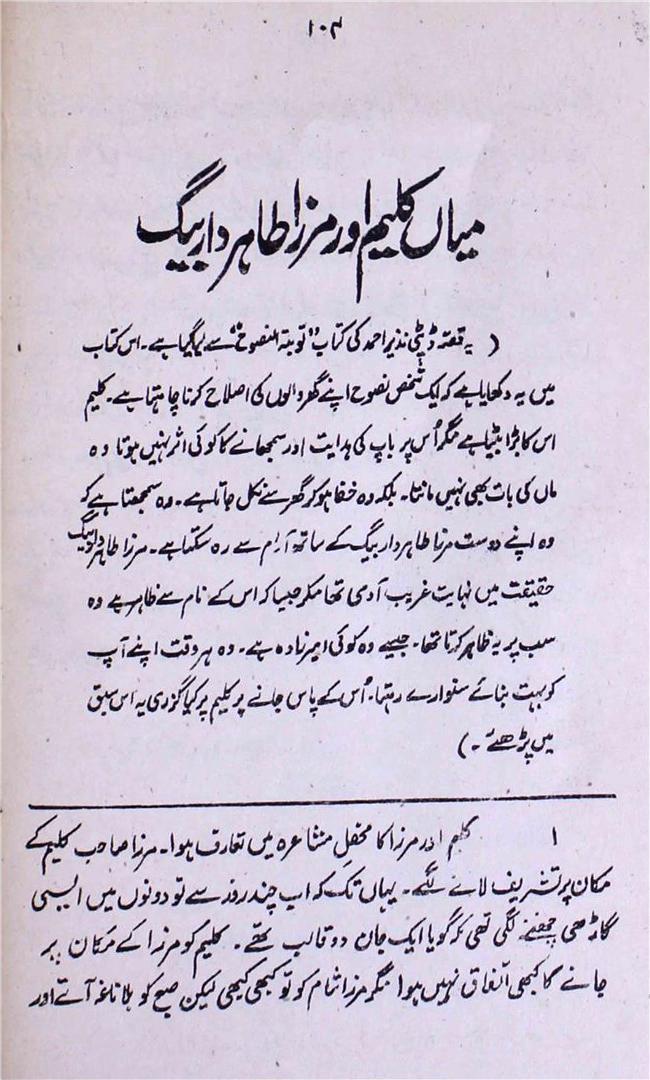 ۱۰۴
میاں کلیم اور مرزا طاہر دار بیگ
( یہ قصّہ ڈپٹی نذیر احمد کی کتاب "توبتہ النصوح" سے لیا گیا ہے۔ اس کتاب
میں یہ دکھایا ہے کہ ایک شخص نصوح اپنے گھر والوں کی اصلاح کرنا چاہتا ہے۔ کلیم
اس کا بڑا بیٹا ہے مگر اُس پر باپ کی ہدایت اور سمجھانے کا کوئی اثر نہیں ہوتا وہ
ماں کی بات بھی نہیں مانتا۔ بلکہ وہ خفا ہو کر گھر سے نکل جاتا ہے۔ وہ سمجھتا ہے کہ
وہ اپنے دوست مرزا طاہر دار بیگ کے ساتھ آرام سے رہ سکتا ہے۔ مرزا طاہر دار بیگ
حقیقت میں نہایت غریب آدمی تھا مگر جیسا کہ اس کے نام سے ظاہر ہے وہ
سب پر یہ ظاہر کرتا تھا۔ جیسے وہ کوئی امیر زادہ ہے۔ وہ ہر وقت اپنے آپ
کو بہت بنائے سنوارے رہتا۔ اُس کے پاس جانے پر کلیم پر کیا گزری یہ اس سبق
میں پڑھئے۔ )
۱ کلیم اور مرزا کا محفلِ مشاعرہ میں تعارف ہوا۔ مرزا صاحب کلیم کے
مکان پر تشریف لانے لگے۔ یہاں تک کہ اب چند روز سے تو دونوں میں ایسی
گاڑھی چھننے لگی تھی کہ گویا ایک جان دو قالب تھے۔ کلیم کو مرزا کے مکان پر
جانے کا کبھی اتفاق نہیں ہوا مگر مرزا شام کو تو کبھی کبھی لیکن صبح کو بلا ناغہ آتے اور